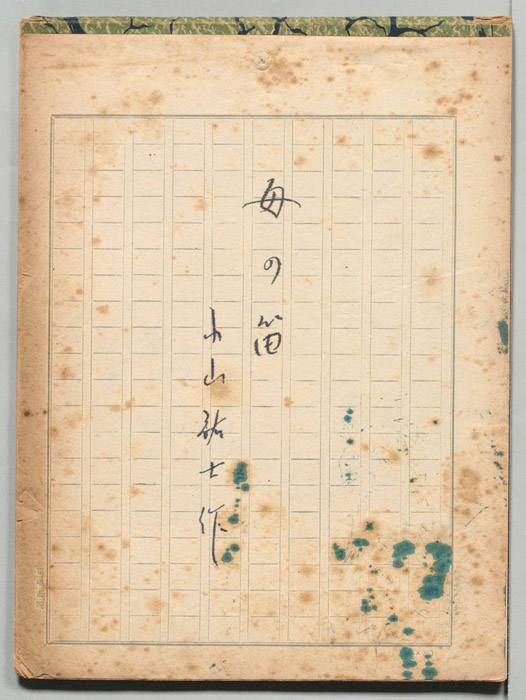 母の笛
小山祐士作